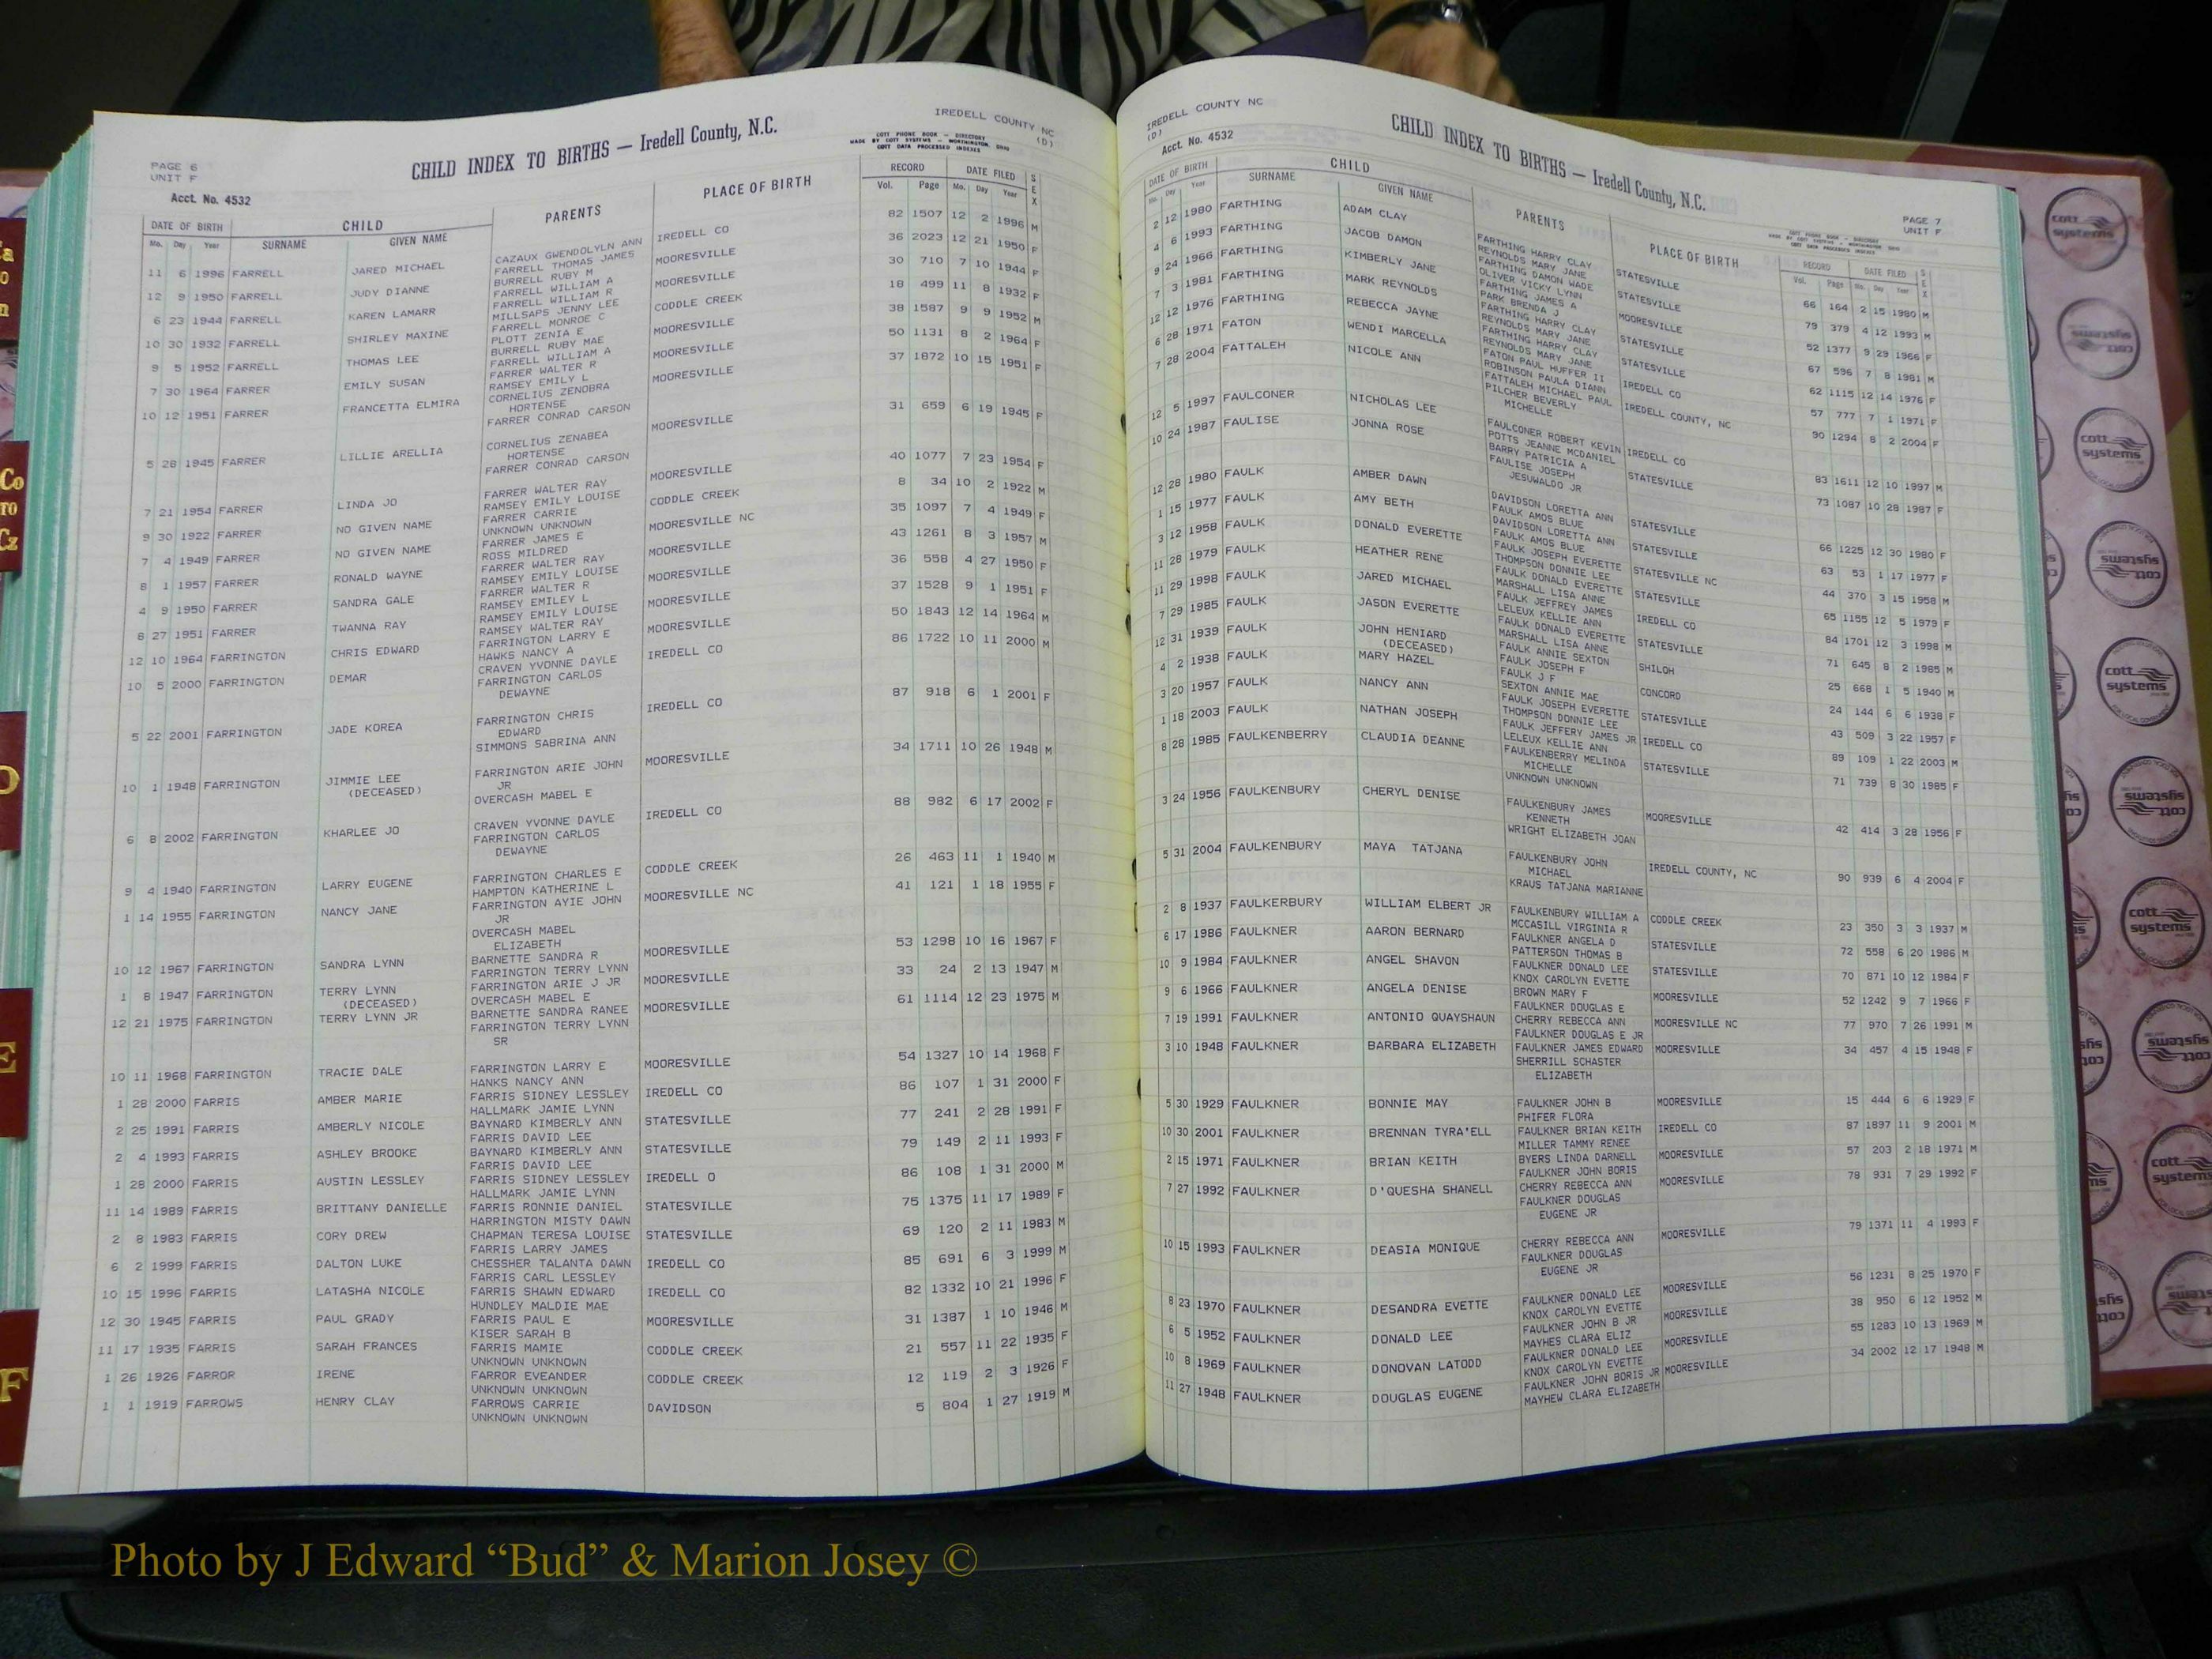 IREDELL COUNTY NC
(D)
CHILD INDEX TO BIRTHS — Iredell County, N.C.
COTT PHONE BOOK — DIRECTORY
MADE BY COTT SYSTEMS — WORTHINGTON, OHIO
COTT DATA PROCESSED INDEXES
PAGE 6
UNIT F
Acct. No. 4532
DATE OF BIRTH CHILD PARENTS PLACE OF BIRTH RECORD DATE FILED SEX
Mo. Day Year SURNAME GIVEN NAME Vol. Page Mo. Day Year
11 6 1996 FARRELL JARED MICHAEL CAZAUX GWENDOLYLN ANN IREDELL CO 82 1507 12 2 1996 M
FARRELL THOMAS JAMES
12 9 1950 FARRELL JUDY DIANNE BURRELL RUBY M MOORESVILLE 36 2023 12 21 1950 F
FARRELL WILLIAM A
6 23 1944 FARRELL KAREN LAMARR FARRELL WILLIAM R MOORESVILLE 30 710 7 10 1944 F
MILLSAPS JENNY LEE
10 30 1932 FARRELL SHIRLEY MAXINE FARRELL MONROE C CODDLE CREEK 18 499 11 8 1932 F
PLOTT ZENIA E
9 5 1952 FARRELL THOMAS LEE BURRELL RUBY MAE MOORESVILLE 38 1587 9 9 1952 M
FARRELL WILLIAM A
7 30 1964 FARRER EMILY SUSAN FARRER WALTER R MOORESVILLE 50 1131 8 2 1964 F
RAMSEY EMILY L
10 12 1951 FARRER FRANCETTA ELMIRA CORNELIUS ZENOBRA MOORESVILLE 37 1872 10 15 1951 F
HORTENSE
FARRER CONRAD CARSON
5 28 1945 FARRER LILLIE ARELLIA CORNELIUS ZENABEA MOORESVILLE 31 659 6 19 1945 F
HORTENSE
FARRER CONRAD CARSON
7 21 1954 FARRER LINDA JO FARRER WALTER RAY MOORESVILLE 40 1077 7 23 1954 F
RAMSEY EMILY LOUISE
9 30 1922 FARRER NO GIVEN NAME FARRER CARRIE CODDLE CREEK 8 34 10 2 1922 M
UNKNOWN UNKNOWN
7 4 1949 FARRER NO GIVEN NAME FARRER JAMES E MOORESVILLE NC 35 1097 7 4 1949 F
ROSS MILDRED
8 1 1957 FARRER RONALD WAYNE FARRER WALTER RAY MOORESVILLE 43 1261 8 3 1957 M
RAMSEY EMILY LOUISE
4 9 1950 FARRER SANDRA GALE FARRER WALTER R MOORESVILLE 36 558 4 27 1950 F
RAMSEY EMILEY L
8 27 1951 FARRER TWANNA RAY RAMSEY EMILY LOUISE MOORESVILLE 37 1528 9 1 1951 F
RAMSEY WALTER RAY
12 10 1964 FARRINGTON CHRIS EDWARD FARRINGTON LARRY E MOORESVILLE 50 1843 12 14 1964 M
HAWKS NANCY A
10 5 2000 FARRINGTON DEMAR CRAVEN YVONNE DAYLE IREDELL CO 86 1722 10 11 2000 M
FARRINGTON CARLOS
DEWAYNE
5 22 2001 FARRINGTON JADE KOREA FARRINGTON CHRIS IREDELL CO 87 918 6 1 2001 F
EDWARD
SIMMONS SABRINA ANN
10 1 1948 FARRINGTON JIMMIE LEE FARRINGTON ARIE JOHN MOORESVILLE 34 1711 10 26 1948 M
(DECEASED) JR
OVERCASH MABEL E
6 8 2002 FARRINGTON KHARLEE JO CRAVEN YVONNE DAYLE IREDELL CO 88 982 6 17 2002 F
FARRINGTON CARLOS
DEWAYNE
9 4 1940 FARRINGTON LARRY EUGENE FARRINGTON CHARLES E CODDLE CREEK 26 463 11 1 1940 M
HAMPTON KATHERINE L
1 14 1955 FARRINGTON NANCY JANE FARRINGTON AYIE JOHN MOORESVILLE NC 41 121 1 18 1955 F
JR
OVERCASH MABEL
ELIZABETH
10 12 1967 FARRINGTON SANDRA LYNN BARNETTE SANDRA R MOORESVILLE 53 1298 10 16 1967 F
FARRINGTON TERRY LYNN
1 8 1947 FARRINGTON TERRY LYNN FARRINGTON ARIE J JR MOORESVILLE 33 24 2 13 1947 M
(DECEASED) OVERCASH MABEL E
12 21 1975 FARRINGTON TERRY LYNN JR BARNETTE SANDRA RANEE MOORESVILLE 61 1114 12 23 1975 M
FARRINGTON TERRY LYNN
SR
10 11 1968 FARRINGTON TRACIE DALE FARRINGTON LARRY E MOORESVILLE 54 1327 10 14 1968 F
HANKS NANCY ANN
1 28 2000 FARRIS AMBER MARIE FARRIS SIDNEY LESSLEY IREDELL CO 86 107 1 31 2000 F
HALLMARK JAMIE LYNN
2 25 1991 FARRIS AMBERLY NICOLE BAYNARD KIMBERLY ANN STATESVILLE 77 241 2 28 1991 F
FARRIS DAVID LEE
2 4 1993 FARRIS ASHLEY BROOKE BAYNARD KIMBERLY ANN STATESVILLE 79 149 2 11 1993 F
FARRIS DAVID LEE
1 28 2000 FARRIS AUSTIN LESSLEY FARRIS SIDNEY LESSLEY IREDELL O 86 108 1 31 2000 M
HALLMARK JAMIE LYNN
11 14 1989 FARRIS BRITTANY DANIELLE FARRIS RONNIE DANIEL STATESVILLE 75 1375 11 17 1989 F
HARRINGTON MISTY DAWN
2 8 1983 FARRIS CORY DREW CHAPMAN TERESA LOUISE STATESVILLE 69 120 2 11 1983 M
FARRIS LARRY JAMES
6 2 1999 FARRIS DALTON LUKE CHESSHER TALANTA DAWN IREDELL CO 85 691 6 3 1999 M
FARRIS CARL LESSLEY
10 15 1996 FARRIS LATASHA NICOLE FARRIS SHAWN EDWARD IREDELL CO 82 1332 10 21 1996 F
HUNDLEY MALDIE MAE
12 30 1945 FARRIS PAUL GRADY FARRIS PAUL E MOORESVILLE 31 1387 1 10 1946 M
KISER SARAH B
11 17 1935 FARRIS SARAH FRANCES FARRIS MAMIE CODDLE CREEK 21 557 11 22 1935 F
UNKNOWN UNKNOWN
1 26 1926 FARROR IRENE FARROR EVEANDER CODDLE CREEK 12 119 2 3 1926 F
UNKNOWN UNKNOWN
1 1 1919 FARROWS HENRY CLAY FARROWS CARRIE DAVIDSON 5 804 1 27 1919 M
UNKNOWN UNKNOWN
IREDELL COUNTY NC
(D)
Acct. No. 4532
CHILD INDEX TO BIRTHS — Iredell County, N.C.
PAGE 7
UNIT F
DATE OF BIRTH CHILD PARENTS PLACE OF BIRTH RECORD DATE FILED SEX
Mo. Day Year SURNAME GIVEN NAME Vol. Page Mo. Day Year
2 12 1980 FARTHING ADAM CLAY FARTHING HARRY CLAY STATESVILLE 66 164 2 15 1980 M
REYNOLDS MARY JANE
4 6 1993 FARTHING JACOB DAMON FARTHING DAMON WADE STATESVILLE 79 379 4 12 1993 M
OLIVER VICKY LYNN
9 24 1966 FARTHING KIMBERLY JANE FARTHING JAMES A MOORESVILLE 52 1377 9 29 1966 F
PARK BRENDA J
7 3 1981 FARTHING MARK REYNOLDS FARTHING HARRY CLAY STATESVILLE 67 596 7 8 1981 M
REYNOLDS MARY JANE
12 12 1976 FARTHING REBECCA JAYNE FARTHING HARRY CLAY STATESVILLE 62 1115 12 14 1976 F
REYNOLDS MARY JANE
6 28 1971 FATON WENDI MARCELLA FATON PAUL HUFFER II IREDELL CO 57 777 7 1 1971 F
ROBINSON PAULA DIANN
7 28 2004 FATTALEH NICOLE ANN FATTALEH MICHAEL PAUL IREDELL COUNTY, NC 90 1294 8 2 2004 F
PILCHER BEVERLY
MICHELLE
12 5 1997 FAULCONER NICHOLAS LEE FAULCONER ROBERT KEVIN IREDELL CO 83 1611 12 10 1997 M
POTTS JEANNE MCDANIEL
10 24 1987 FAULISE JONNA ROSE BARRY PATRICIA A STATESVILLE 73 1087 10 28 1987 F
FAULISE JOSEPH
JESUWALDO JR
12 28 1980 FAULK AMBER DAWN DAVIDSON LORETTA ANN STATESVILLE 66 1225 12 30 1980 F
FAULK AMOS BLUE
1 15 1977 FAULK AMY BETH DAVIDSON LORETTA ANN STATESVILLE 63 53 1 17 1977 F
FAULK AMOS BLUE
3 12 1958 FAULK DONALD EVERETTE FAULK JOSEPH EVERETTE STATESVILLE NC 44 370 3 15 1958 M
THOMPSON DONNIE LEE
11 28 1979 FAULK HEATHER RENE FAULK DONALD EVERETTE STATESVILLE 65 1155 12 5 1979 F
MARSHALL LISA ANNE
11 29 1998 FAULK JARED MICHAEL FAULK JEFFREY JAMES IREDELL CO 84 1701 12 3 1998 M
LELEUX KELLIE ANN
7 29 1985 FAULK JASON EVERETTE FAULK DONALD EVERETTE STATESVILLE 71 645 8 2 1985 M
MARSHALL LISA ANNE
12 31 1939 FAULK JOHN HENIARD FAULK ANNIE SEXTON SHILOH 25 668 1 5 1940 M
(DECEASED) FAULK JOSEPH F
4 2 1938 FAULK MARY HAZEL FAULK J F CONCORD 24 144 6 6 1938 F
SEXTON ANNIE MAE
3 20 1957 FAULK NANCY ANN FAULK JOSEPH EVERETTE STATESVILLE 43 509 3 22 1957 F
THOMPSON DONNIE LEE
1 18 2003 FAULK NATHAN JOSEPH FAULK JEFFERY JAMES JR IREDELL CO 89 109 1 22 2003 M
LELEUX KELLIE ANN
8 28 1985 FAULKENBERRY CLAUDIA DEANNE FAULKENBERRY MELINDA STATESVILLE 71 739 8 30 1985 F
MICHELLE
UNKNOWN UNKNOWN
3 24 1956 FAULKENBURY CHERYL DENISE FAULKENBURY JAMES MOORESVILLE 42 414 3 28 1956 F
KENNETH
WRIGHT ELIZABETH JOAN
5 31 2004 FAULKENBURY MAYA TATJANA FAULKENBURY JOHN IREDELL COUNTY, NC 90 939 6 4 2004 F
MICHAEL
KRAUS TATJANA MARIANNE
2 8 1937 FAULKERBURY WILLIAM ELBERT JR FAULKENBURY WILLIAM A CODDLE CREEK 23 350 3 3 1937 M
MCCASILL VIRGINIA R
6 17 1986 FAULKNER AARON BERNARD FAULKNER ANGELA D STATESVILLE 72 558 6 20 1986 M
PATTERSON THOMAS B
10 9 1984 FAULKNER ANGEL SHAVON FAULKNER DONALD LEE STATESVILLE 70 871 10 12 1984 F
KNOX CAROLYN EVETTE
9 6 1966 FAULKNER ANGELA DENISE BROWN MARY F MOORESVILLE 52 1242 9 7 1966 F
FAULKNER DOUGLAS E
7 19 1991 FAULKNER ANTONIO QUAYSHAUN CHERRY REBECCA ANN MOORESVILLE NC 77 970 7 26 1991 M
FAULKNER DOUGLAS E JR
3 10 1948 FAULKNER BARBARA ELIZABETH FAULKNER JAMES EDWARD MOORESVILLE 34 457 4 15 1948 F
SHERRILL SCHASTER
ELIZABETH
5 30 1929 FAULKNER BONNIE MAY FAULKNER JOHN B MOORESVILLE 15 444 6 6 1929 F
PHIFER FLORA
10 30 2001 FAULKNER BRENNAN TYRA'ELL FAULKNER BRIAN KEITH IREDELL CO 87 1897 11 9 2001 M
MILLER TAMMY RENEE
2 15 1971 FAULKNER BRIAN KEITH BYERS LINDA DARNELL MOORESVILLE 57 203 2 18 1971 M
FAULKNER JOHN BORIS
7 27 1992 FAULKNER D'QUESHA SHANELL CHERRY REBECCA ANN MOORESVILLE 78 931 7 29 1992 F
FAULKNER DOUGLAS
EUGENE JR
10 15 1993 FAULKNER DEASIA MONIQUE CHERRY REBECCA ANN MOORESVILLE 79 1371 11 4 1993 F
FAULKNER DOUGLAS
EUGENE JR
8 23 1970 FAULKNER DESANDRA EVETTE FAULKNER DONALD LEE MOORESVILLE 56 1231 8 25 1970 F
KNOX CAROLYN EVETTE
6 5 1952 FAULKNER DONALD LEE FAULKNER JOHN B JR MOORESVILLE 38 950 6 12 1952 M
MAYHES CLARA ELIZ
10 8 1969 FAULKNER DONOVAN LATODD FAULKNER DONALD LEE MOORESVILLE 55 1283 10 13 1969 M
KNOX CAROLYN EVETTE
11 27 1948 FAULKNER DOUGLAS EUGENE FAULKNER JOHN BORIS JR MOORESVILLE 34 2002 12 17 1948 M
MAYHEW CLARA ELIZABETH
Co
TO
Cz
D
E
F
cott
systems
Photo by J Edward “Bud” & Marion Josey ©